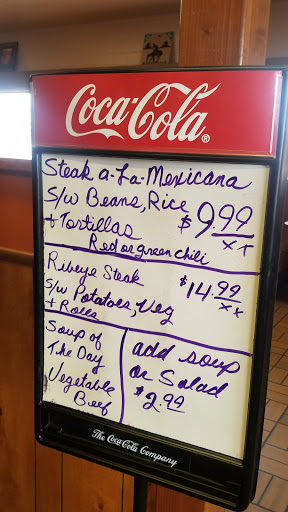 Coca-Cola®
Steak a-La-Mexicana
S/w Beans, Rice $9.99
+ Tortillas x T
Red or green chili
Ribeye Steak $14.99
S/w Potatoes, Veg x x
+ Rolls
Soup of
The Day
Vegetable
Beef
add soup
or Salad
$2.99
The Coca-Cola Company